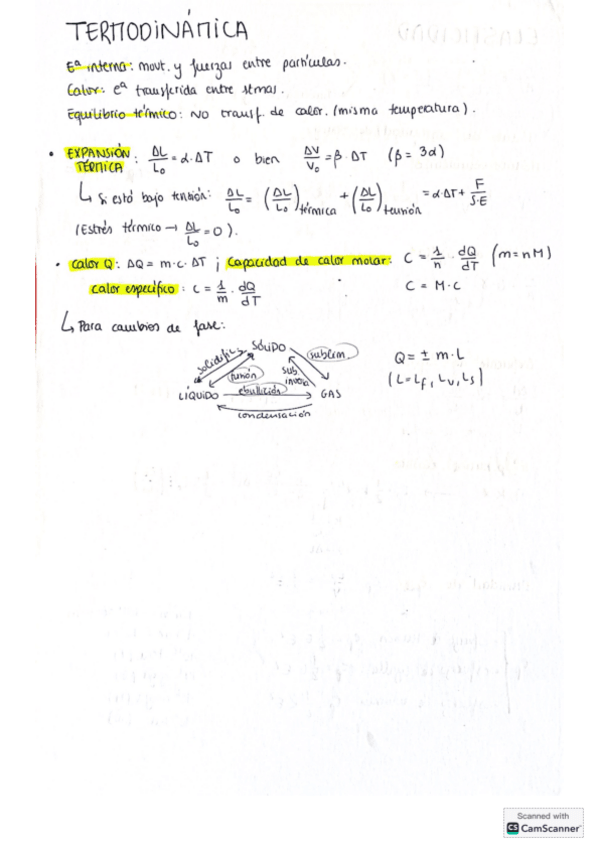 TERMODINÁMICA
Eª interna: movt. y fuerzas entre partículas.
Calor: eª transferida entre stemas.
Equilibrio térmico: NO transf. de calor. (misma temperatura).
• EXPANSIÓN TÉRMICA: ΔL/L₀ = α·ΔT o bien ΔV/V₀ = β·ΔT (β = 3α)
↳ Si está bajo tensión: ΔL/L₀ = (ΔL/L₀)térmica + (ΔL/L₀)tensión = α·ΔT + F/S·E
(Estrés térmico → ΔL/L₀ = 0).
• Calor Q: ΔQ = m·c·ΔT ; Capacidad de calor molar: C = 1/n · dQ/dT (m = nM)
calor específico: c = 1/m · dQ/dT C = M·c
↳ Para cambios de fase:
SÓLIDO
solidific.
sublim.
fusión
sub. inversa
Q = ± m·L
(L = Lf, Lv, Ls)
LÍQUIDO
ebullición
GAS
condensación
Scanned with
CS CamScanner